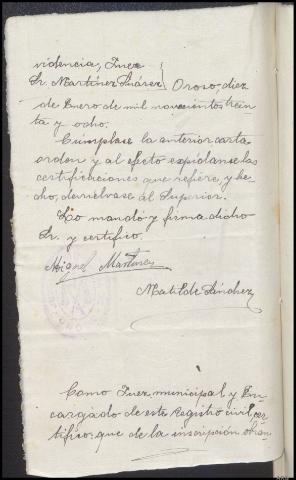 videncia, Juez
Sr. Martínez Suárez } Oroso, diez
de Enero de mil novecientos trein
ta y ocho.
Cúmplase la anterior carta
orden y al efecto expídanse las
certificaciones que refiere, y he-
cho, devuélvase al Superior.
Lo mandó y firma dicho
Sr. y certifico.
Miguel Martínez
Matilde Sánchez
Como Juez municipal y En-
cargado de este Registro civil, cer-
tifico: que de la inscripción obran